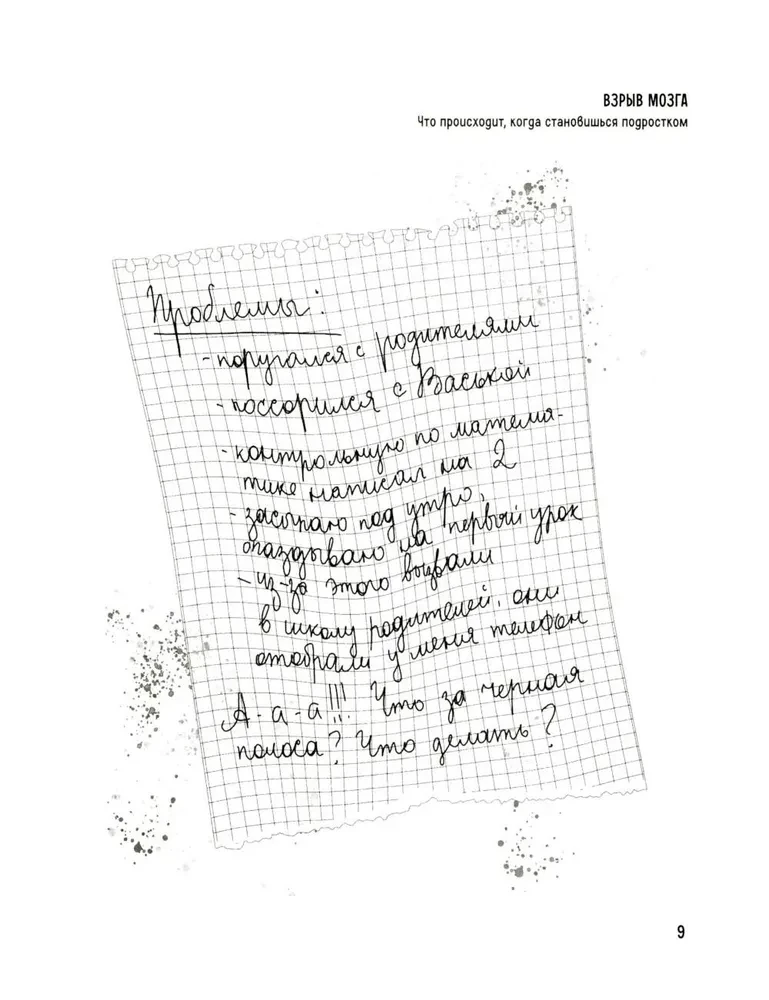 ВЗРЫВ МОЗГА
Что происходит, когда становишься подростком
Проблемы:
- поругался с родителями
- поссорился с Васькой
- контрольную по матема-
тике написал на 2
- засыпаю под утро,
опаздываю на первый урок
- из-за этого вызвали
в школу родителей, они
отобрали у меня телефон
А-а-а!!! Что за черная
полоса? Что делать?
9